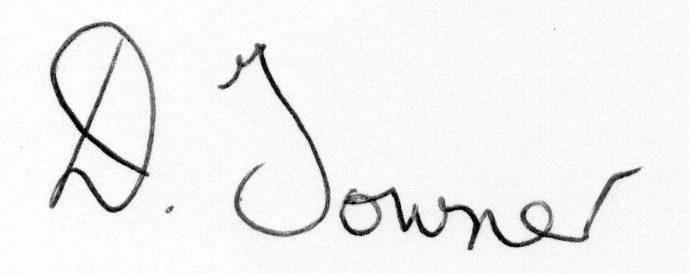 D. Towner